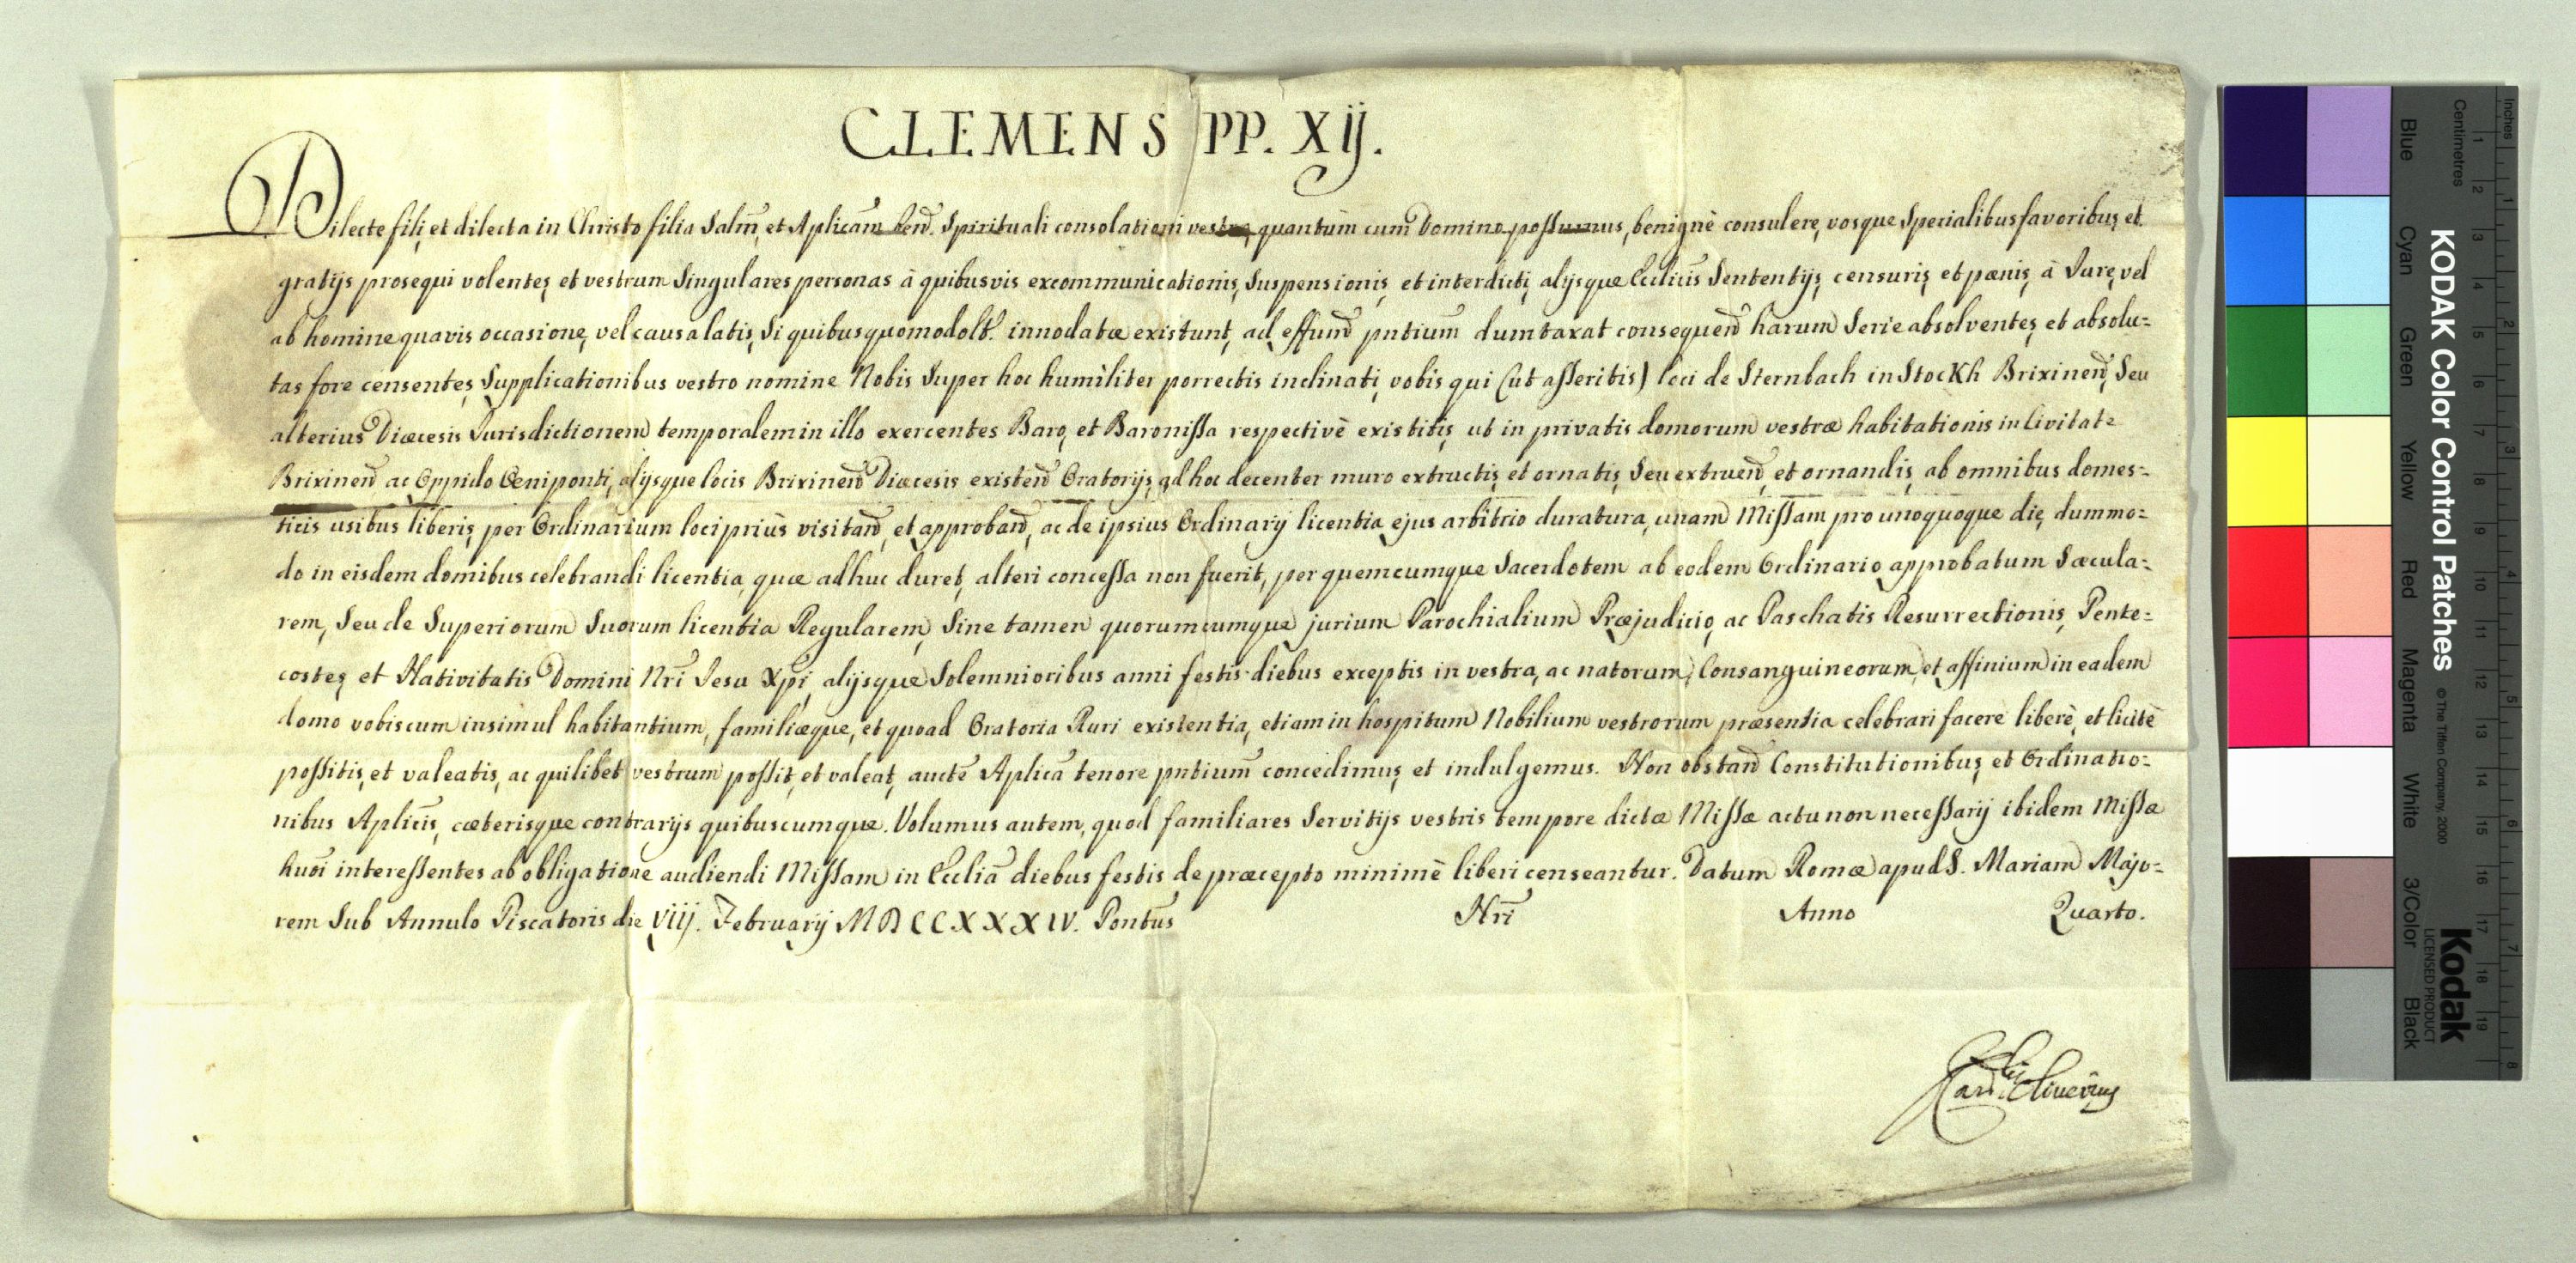 CLEMENS PP. XIJ.
Dilecte fili, et dilecta in Christo filia Salm̄, et Aplicam̄ ben̄. Spirituali consolationi vestræ, quantum cum Domino possumus, benignè consulere, vosque Specialibus favoribus, et
gratijs prosequi volentes, et vestrum Singulares personas à quibusvis excommunicationis, Suspensionis, et interdicti, alijsque Ecclicis̄ Sententijs, censuris, et pœnis, à Jure, vel
ab homine quavis occasione, vel causa latis, Si quibus quomodolt̄. innodatæ existunt, ad effum̄ pntium̄ dumtaxat consequen̄ harum Serie absolventes, et absolu=
tas fore censentes, Supplicationibus vestro nomine Nobis Super hoc humiliter porrectis inclinati, vobis qui (ut asseritis) loci de Sternbach in StocKh Brixinen̄, Seu
alterius Diœcesis Jurisdictionem temporalem in illo exercentes Baro, et Baronissa respectivè existitis, ut in privatis domorum vestræ habitationis in Civitate
Brixinen̄ ac Oppido Œniponti, alijsque locis Brixinen̄ Diœcesis existen̄ Oratorijs, ad hoc decenter muro extructis, et ornatis, Seu extruen̄, et ornandis, ab omnibus domes=
ticis usibus liberis, per Ordinarium loci priùs visitan̄, et approban̄, ac de ipsius Ordinarij licentia, ejus arbitrio duratura, unam Missam pro unoquoque die, dummo=
do in eisdem domibus celebrandi licentia, quæ adhuc duret, alteri concessa non fuerit, per quemcumque Sacerdotem ab eodem Ordinario approbatum Sæcula=
rem, Seu de Superiorum Suorum licentia Regularem, Sine tamen quorumcumque jurium Parochialium Præjudicio, ac Paschatis Resurrectionis, Pente=
costes, et Nativitatis Domini Nr̄i Jesu Xp̄i, alijsque Solemnioribus anni festis diebus exceptis in vestra, ac natorum, Consanguineorum, et affinium in eadem
domo vobiscum insimul habitantium, familiæque, et quoad Oratoria Ruri existentia, etiam in hospitum Nobilium vestrorum præsentia celebrari facere liberè, et licitè
possitis, et valeatis, ac quilibet vestrum possit, et valeat, auctē Aplicā tenore pntium̄ concedimus, et indulgemus. Non obstan̄ Constitutionibus, et Ordinatio=
nibus Aplicis̄, cæterisque contrarijs quibuscumque. Volumus autem, quod familiares Servitijs vestris tempore dictæ Missæ actu non necessarij ibidem Missæ
huōi interessentes ab obligatione audiendi Missam in Eccliā diebus festis de præcepto minimè liberi censeantur. Datum Romæ apud S. Mariam Majo=
rem Sub Annulo Piscatoris die VIIJ. Februarij MDCCXXXIV. Pontus̄ Nr̄i Anno Quarto.
Card. Oliverius
KODAK Color Control Patches
© The Tiffen Company, 2000
Kodak
LICENSED PRODUCT
Inches
1 2 3 4 5 6 7 8
Centimetres
1 2 3 4 5 6 7 8 9 10 11 12 13 14 15 16 17 18 19
Blue Cyan Green Yellow Red Magenta White 3/Color Black